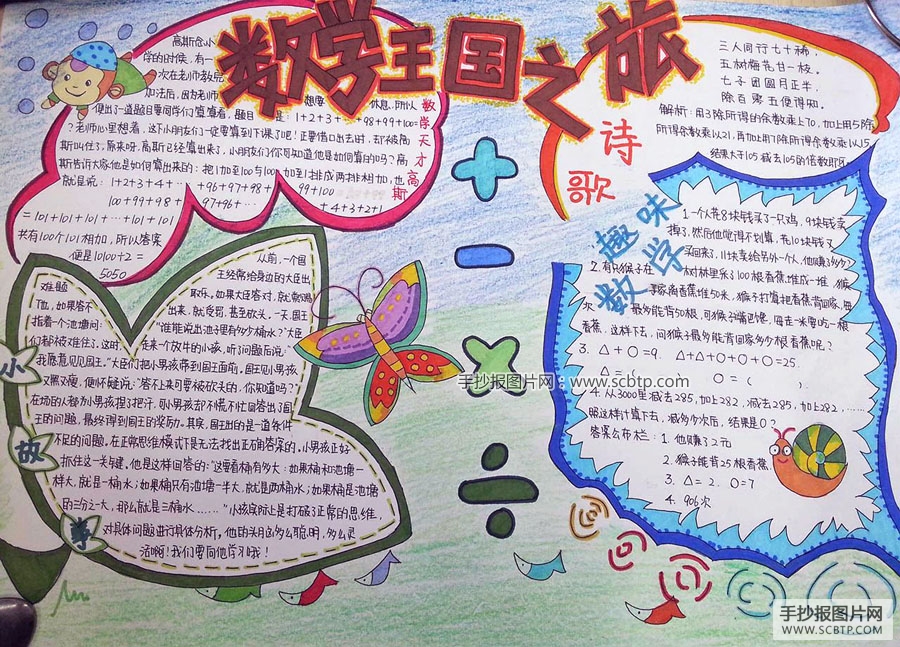 数学王国之旅
高斯念小
学的时候,有一
次在老师教完
加法后,因为老师
想要
休息,所以
便出了一道题目要同学们算算看,题目
是:1+2+3+‥+98+99+100=
?老师心里想着,这下小朋友们一定要算到下课了吧!正要借口出去时,却被高
斯叫住了,原来呀,高斯已经算出来了,小朋友们你可知道他是如何算的吗?高
斯告诉大家他是如何算出来的:把1加至100与100加到1排成两排相加,也
就是说:1+2+3+4+‥+96+97+98+99+100
100+99+98+97+96+‥+4+3+2+1
=101+101+101+‥+101+101
共有100个101相加,所以答案
便是10100÷2=
5050
数学天才高斯
三人同行七十稀,
五树梅花廿一枝。
七子团圆月正半,
除百零五便得知。
解析:用3除所得的余数乘上70,加上用5除
所得余数乘以21,再加上用7除所得余数乘以15,
结果大于105减去105的倍数即可
诗歌
趣味数学
1.一个人花8块钱买了一只鸡,9块钱卖
掉了,然后他觉得不划算,花10块钱又
买回来了,11块卖给另外一个人,他赚了多少?
2.有只猴子在
树林里采了100根香蕉堆成一堆,猴
子家离香蕉堆50米,猴子打算把香蕉背回家,每
次
最多能背50根,可猴子嘴巴馋,每走一米要吃一根
香蕉,这样下去,问猴子最多能背回家多少根香蕉呢?
3.△+○=9, △+△+○+○+○=25
△=( ) ○=( ).
4.从3000里减去285,加上282,减去285,加上282,……
照这样计算下去,减多少次后,结果是0?
答案公布栏:1.他赚了2元
2.猴子能背25根香蕉
3.△=2, ○=7
4.906次
小故事
从前,一个国
王经常给身边的大臣出
难题
取乐,如果大臣答对,
出来,就受罚,甚至砍头,一天,国王
指着一个池塘问:
"谁能说出池子里有多少桶水?"大臣
们都被难住了,这时,
走来一个放牛的小孩,听了问题后说:
"我愿意见见国王。"大臣们把小男孩带到国王面前,国王见小男孩
又黑又瘦,便怀疑说:"答不上来可要被砍头的,你知道吗?"
在场的人都为小男孩捏了把汗,可小男孩却不慌不忙回答出了国
王的问题,最终得到国王的奖励。其实,国王出的是一道条件
不足的问题,在正常思维模式下是无法找出正确答案的,小男孩正好
抓住这一关键,他是这样回答的:"这要看桶有多大:如果桶和池塘一
样大,就是一桶水;如果桶只有池塘一半大,就是两桶水;如果桶是池塘
的三分之一大,那么就是三桶水……"小孩实际上是打破了正常的思维,
对具体问题进行具体分析,他的头脑多么聪明,多么灵
活啊!我们要向他学习哦!
手抄报图片网:www.scbtp.com
手抄报图片网
WWW.SCBTP.COM